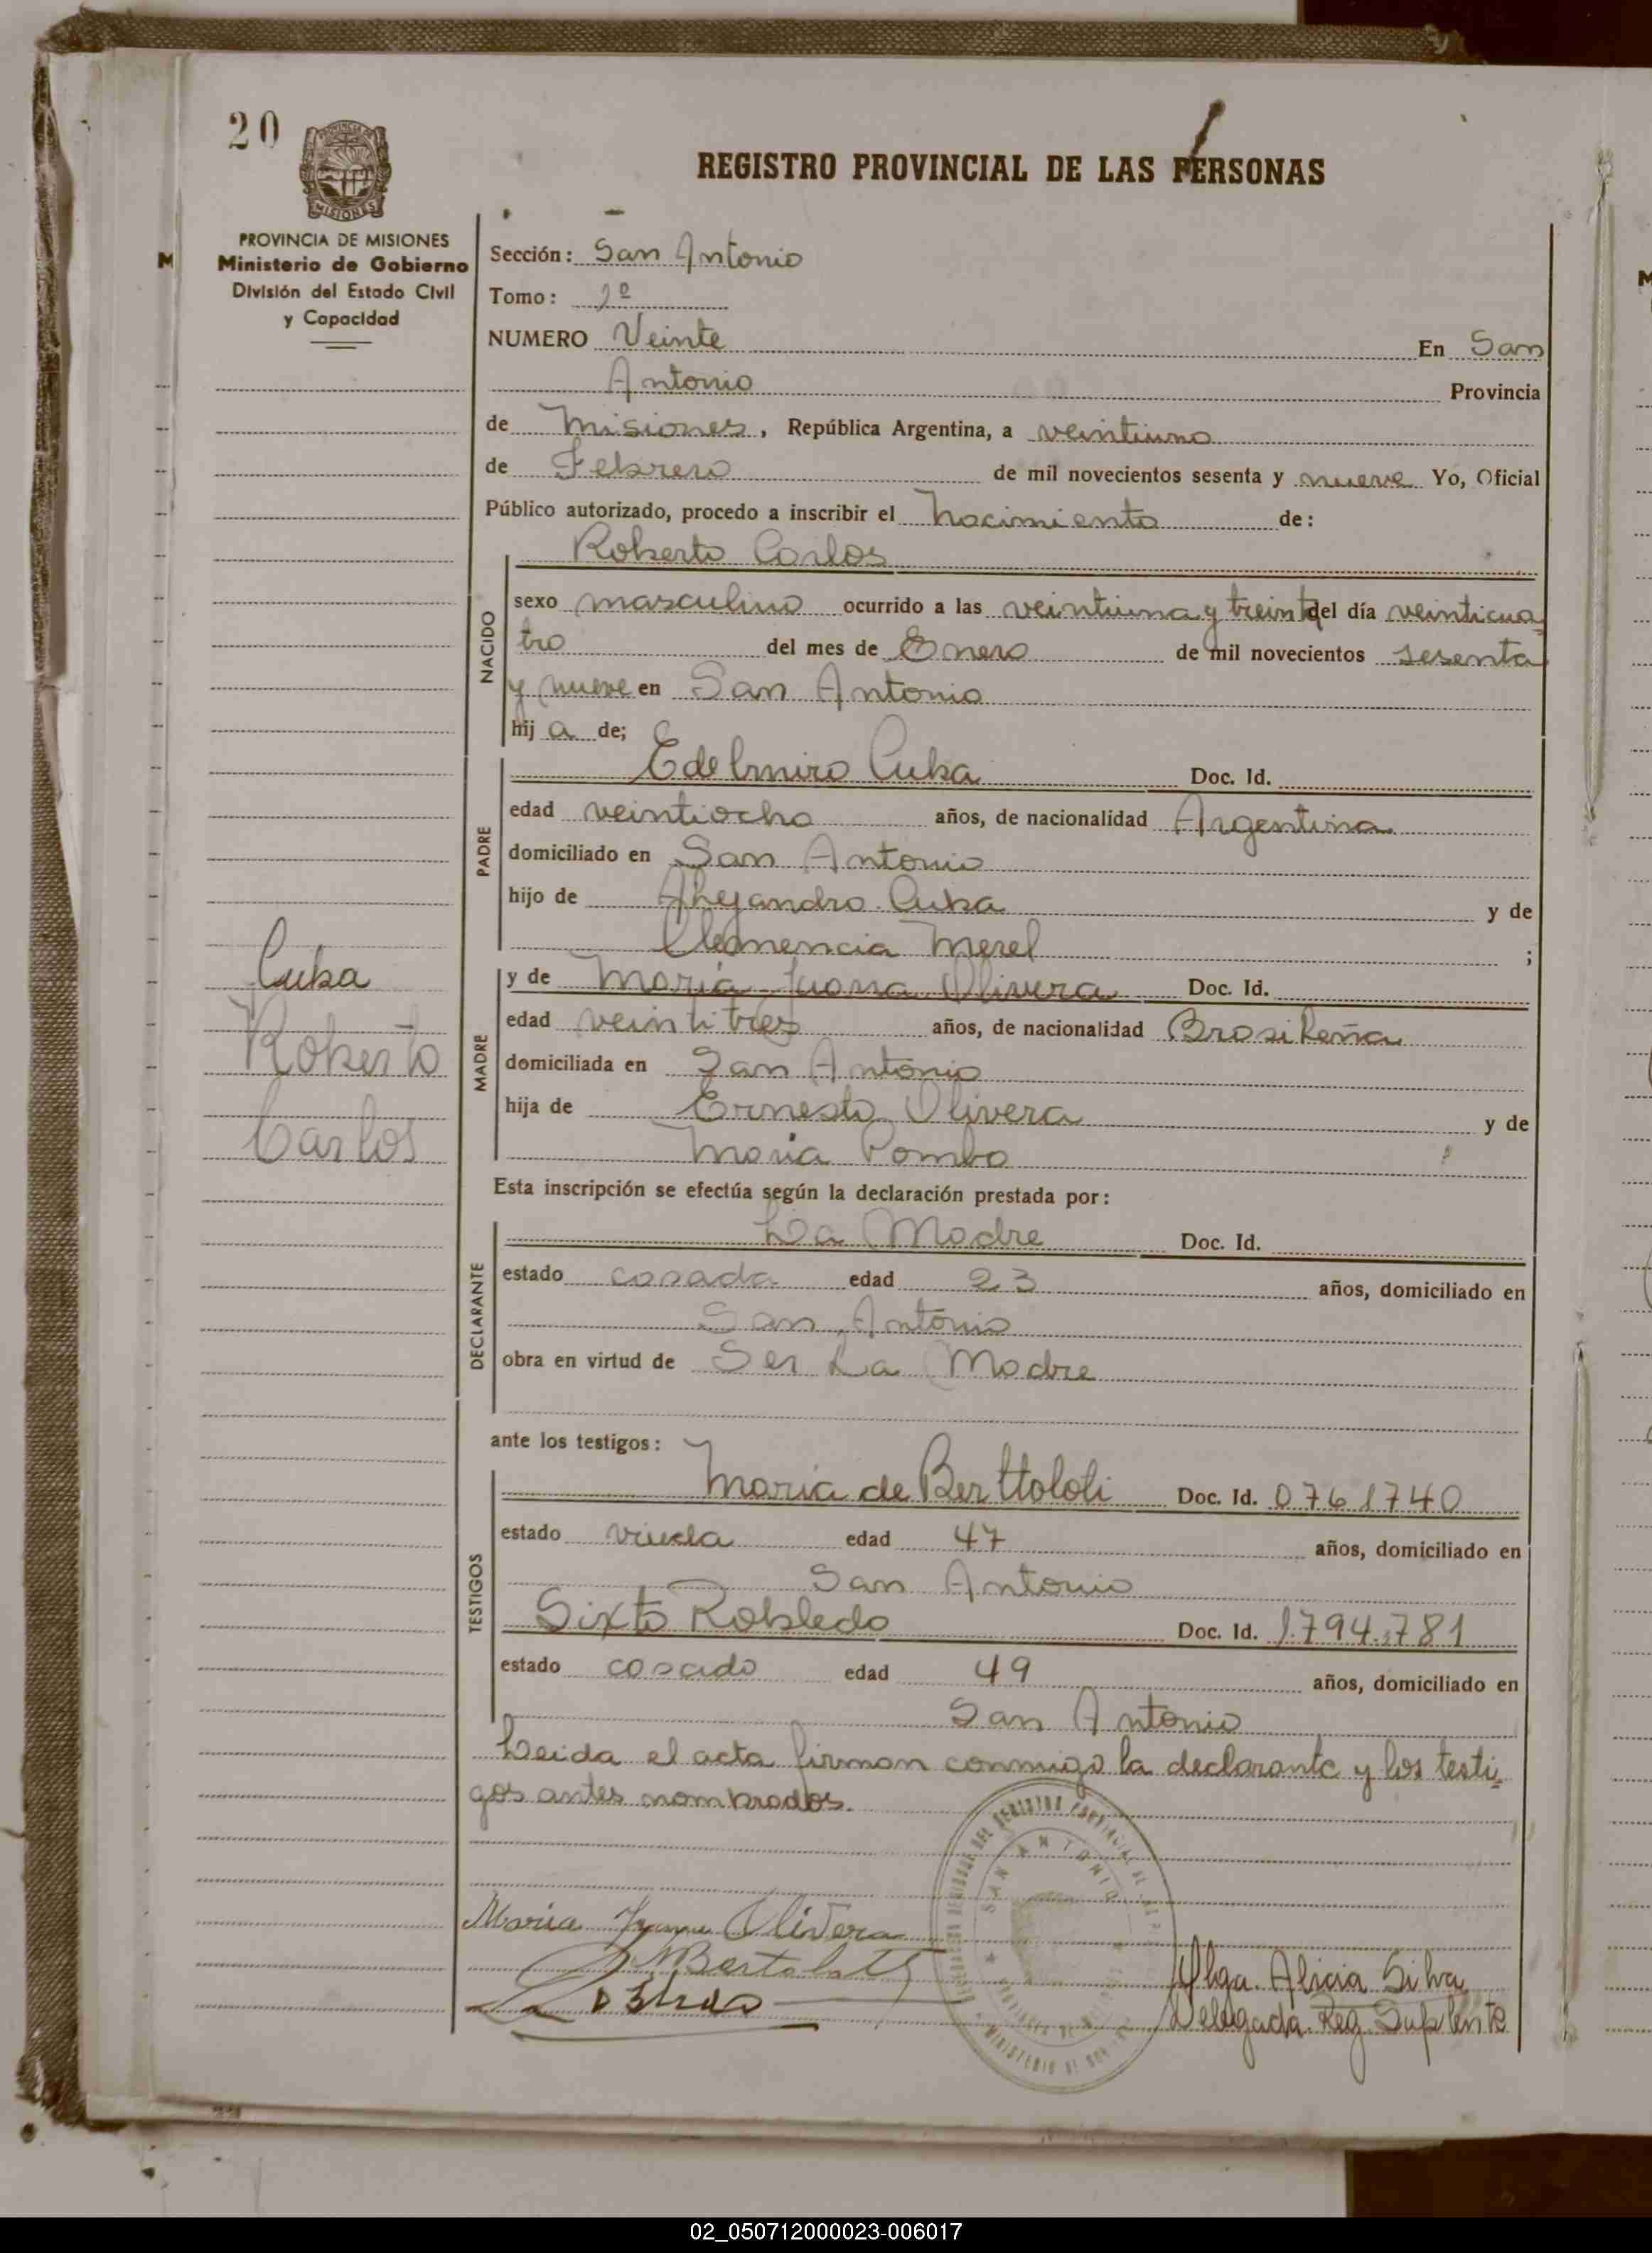 20
PROVINCIA DE MISIONES
MISIONES
PROVINCIA DE MISIONES
Ministerio de Gobierno
División del Estado Civil
y Capacidad
REGISTRO PROVINCIAL DE LAS PERSONAS
Sección: San Antonio
Tomo: 1º
NUMERO Veinte En San
Antonio Provincia
de Misiones, República Argentina, a veintiuno
de Febrero de mil novecientos sesenta y nueve Yo, Oficial
Público autorizado, procedo a inscribir el nacimiento de:
Roberto Carlos
NACIDO
sexo masculino ocurrido a las veintiuna y treinta del día veinticua-
tro del mes de Enero de mil novecientos sesenta
y nueve en San Antonio
hij a de;
PADRE
Edelmiro Cuba Doc. Id.
edad veintiocho años, de nacionalidad Argentina
domiciliado en San Antonio
hijo de Alejandro Cuba y de
Clemencia Merel ;
MADRE
y de Maria Juana Olivera Doc. Id.
edad veintitres años, de nacionalidad Brasileña
domiciliada en San Antonio
hija de Ernesto Olivera y de
Maria Pombo
Cuba
Roberto
Carlos
Esta inscripción se efectúa según la declaración prestada por:
DECLARANTE
La Madre Doc. Id.
estado casada edad 23 años, domiciliado en
San Antonio
obra en virtud de Ser La Madre
ante los testigos:
TESTIGOS
Maria de Berttoloti Doc. Id. 0761740
estado viuda edad 47 años, domiciliado en
San Antonio
Sixto Robledo Doc. Id. 1.794.781
estado casado edad 49 años, domiciliado en
San Antonio
Leida el acta firman conmigo la declarante y los testi-
gos antes nombrados.
SAN ANTONIO
Maria Juana Olivera
Bertolotti
Olga Alicia Silva
Delegada Reg. Suplente
02_050712000023-006017